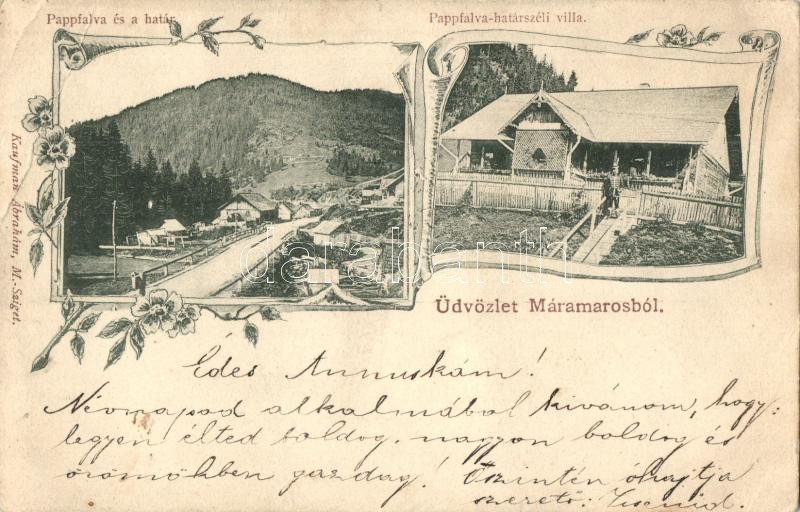 Pappfalva és a határ.
Pappfalva-határszéli villa.
Kaufman Ábrahám, M.-Sziget.
darabanth
Üdvözlet Máramarosból.
Édes Annuskám!
Névnapod alkalmából kivánom, hogy
legyen élted boldog, nagyon boldog és
örömökben gazdag! Őszintén óhajtja
szerető: